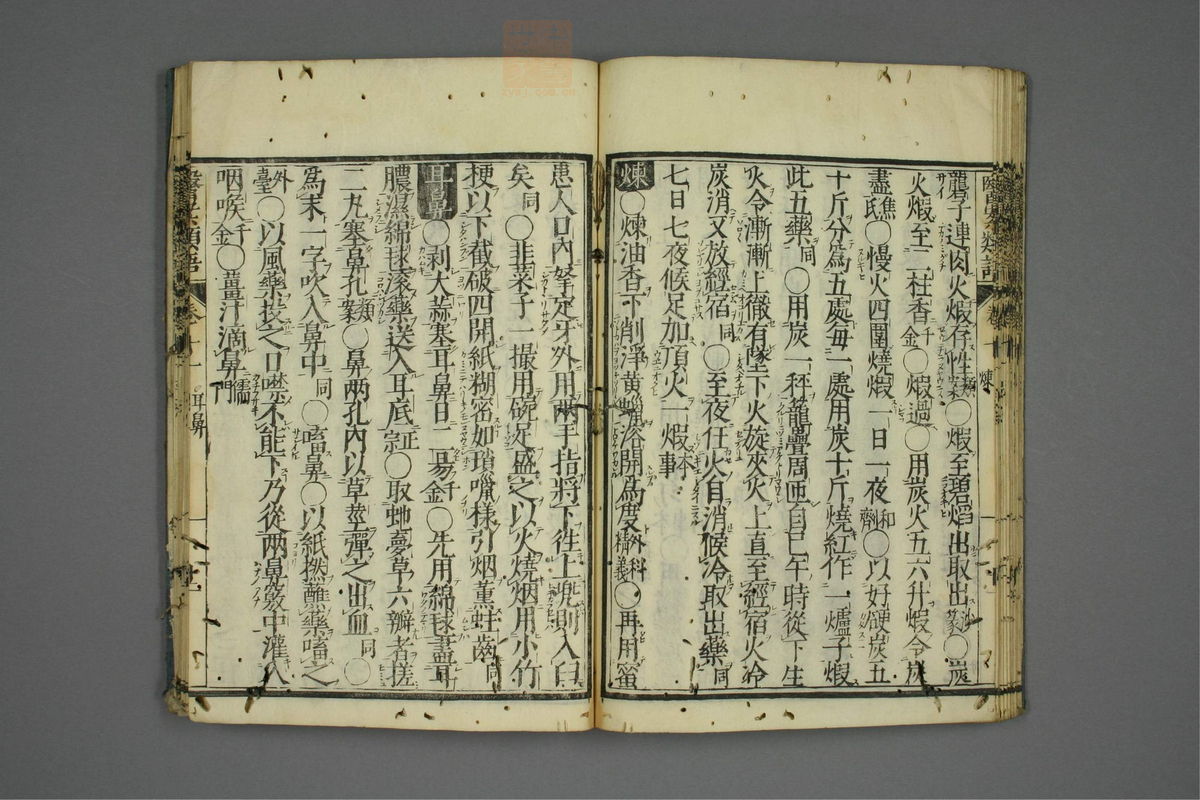 連肉火煅存性
火煅至二柱香千金○煅過○用炭火五六升煅令炭
盡○慢火四圍燒煅一日一夜和劑○以好硬炭五
十斤分為五處每一處用炭十斤燒紅作一爐子煅
此五藥同○用炭一秤籠疊周匝自巳午時從下生
火令漸漸上徹有墜下火旋夾火上直至經宿火冷
炭消又放經宿同○至夜任火自消候冷取出藥同
七日七夜候足加頂火一煅本事
煉○煉油香下削淨黃蠟溶開為度外科精義○再用蜜
患人口內拏定牙外用兩手指將下往上兜則入臼
矣同○韭菜子一撮用碗足盛之以火燒烟用小竹
梗以下截破四開紙糊密如瑣樣引烟薰蛀齒同
耳鼻○剥大蒜塞耳鼻日二易千金○先用綿球蘸耳
膿濕綿球滾藥送入耳底正宗○取虵夢草六瓣者搓
二丸塞鼻孔類案○鼻兩孔內以草莖彈之出血同○
為末一字吹入鼻中同○㗜鼻○以紙撚蘸藥㗜之
外臺○以風藥投之口噤不能下乃從兩鼻竅中灌入
咽喉千金○薑汁滴鼻儒門
卷十一 耳鼻